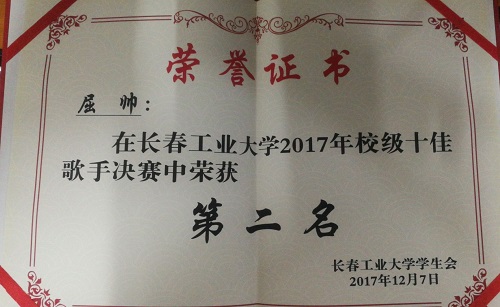 荣誉证书
屈帅：
在长春工业大学2017年校级十佳
歌手决赛中荣获
第二名
长春工业大学学生会
2017年12月7日